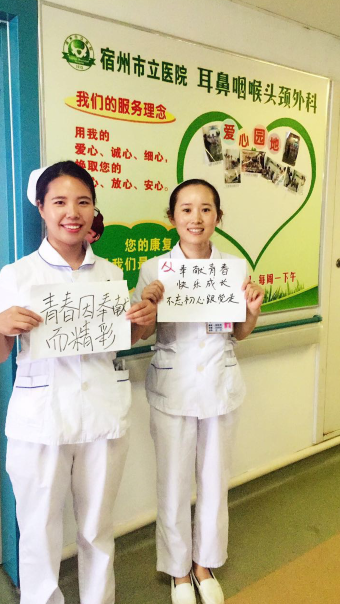 宿州市立医院 耳鼻咽喉头颈外科
我们的服务理念
用我的
爱心、诚心、细心,
换取您的
心、放心、安心。
爱心园地
您的康复
我们最
每周一下午
青春因奉献
而精彩
奉献青春
快乐成长
不忘初心跟党走